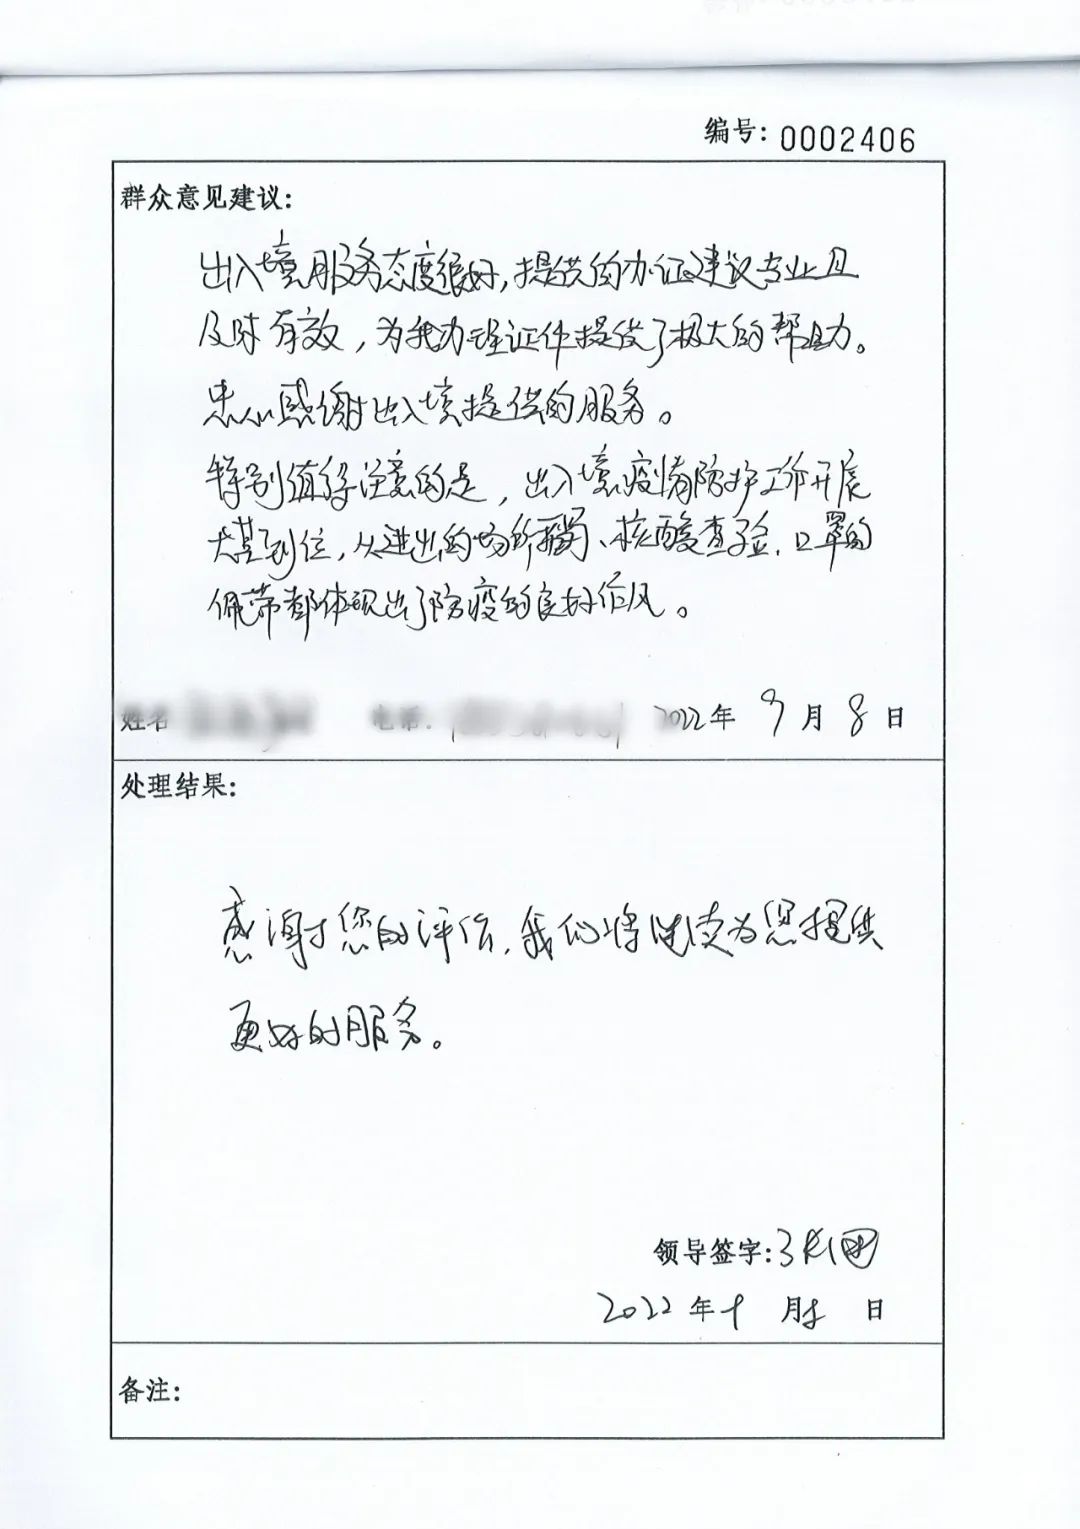 编号: 0002406
群众意见建议:
出入境服务态度很好,提供的办证建议专业且
及时有效,为我办理证件提供了极大的帮助。
忠心感谢出入境提供的服务。
特别值得注意的是,出入境疫情防护工作开展
到位,从进出的场所、核酸查验、口罩的
佩带都体现出了防疫的良好作风。
姓名 电话: 2022年9月8日
处理结果:
感谢您的评价,我们将继续为您提供
更好的服务。
领导签字:
2022年 月 日
备注: